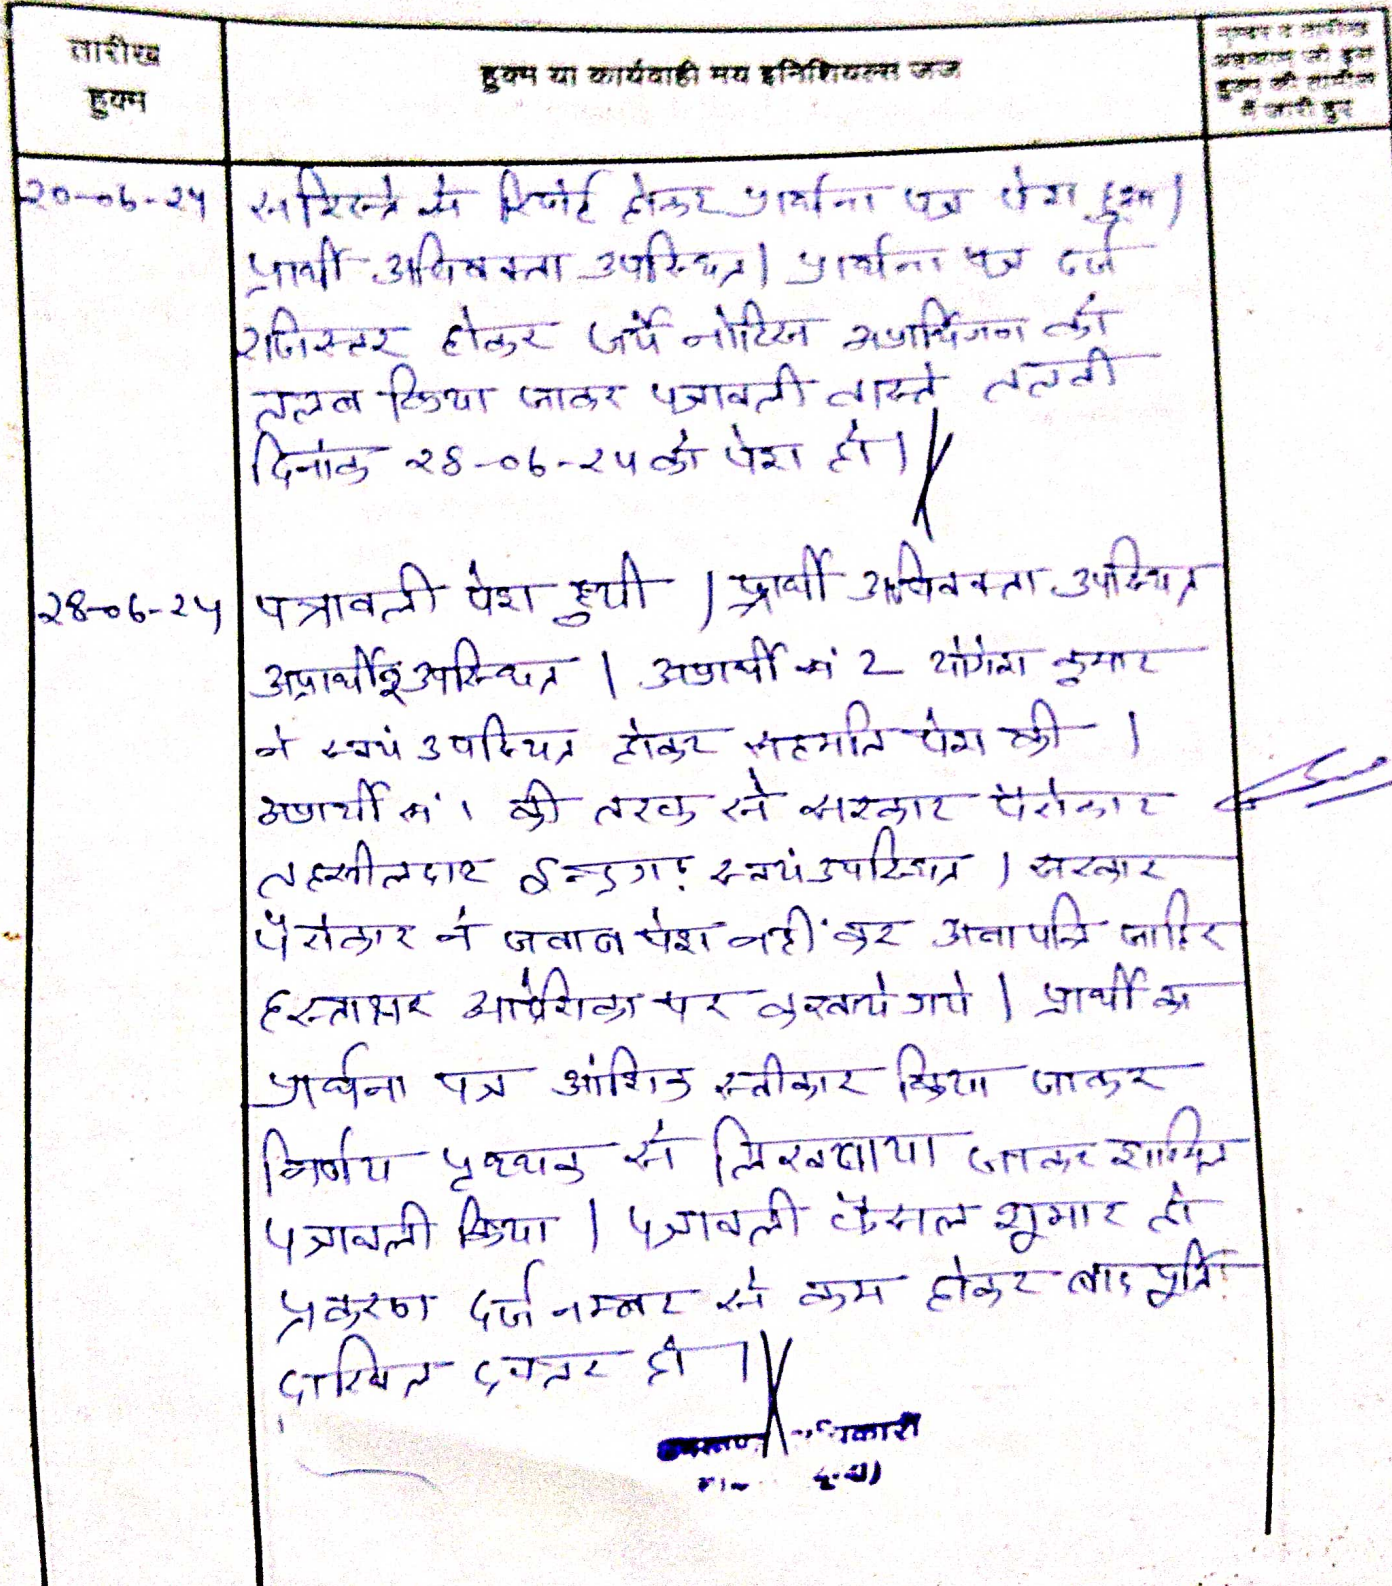 तारीख
हुक्म
हुक्म या कार्यवाही मय इनिशियल्स जज
नम्बर व तारीख
अहकाम जो इस
हुक्म की तामील
में जारी हुए
20-06-24
सरिश्ते से रिपोर्ट होकर प्रार्थना पत्र पेश हुआ।
प्रार्थी अधिवक्ता उपस्थित। प्रार्थना पत्र दर्ज
रजिस्टर होकर जर्ये नोटिस अप्रार्थीगण को
तलब किया जाकर पत्रावली वास्ते तलबी
दिनांक 28-06-24 को पेश हो।
28-06-24
पत्रावली पेश हुयी। प्रार्थी अधिवक्ता उपस्थित
अप्रार्थी उपस्थित। अप्रार्थी सं 2 योगेश कुमार
ने स्वयं उपस्थित होकर सहमति पेश की।
अप्रार्थी सं 1 की तरफ से सरकार पैरोकार
तहसीलदार इन्द्रगढ़ स्वयं उपस्थित। सरकार
पैरोकार ने जवाब पेश नहीं कर अनापत्ति जाहिर
हस्ताक्षर आदेशिका पर करवाये गये। प्रार्थी का
प्रार्थना पत्र आंशिक स्वीकार किया जाकर
निर्णय पृथ्थक से लिखवाया जाकर शामिल
पत्रावली किया। पत्रावली फैसल शुमार हो
प्रकरण दर्ज नम्बर से कम होकर बाद पूर्ति
दाखिल दफ्तर हो।